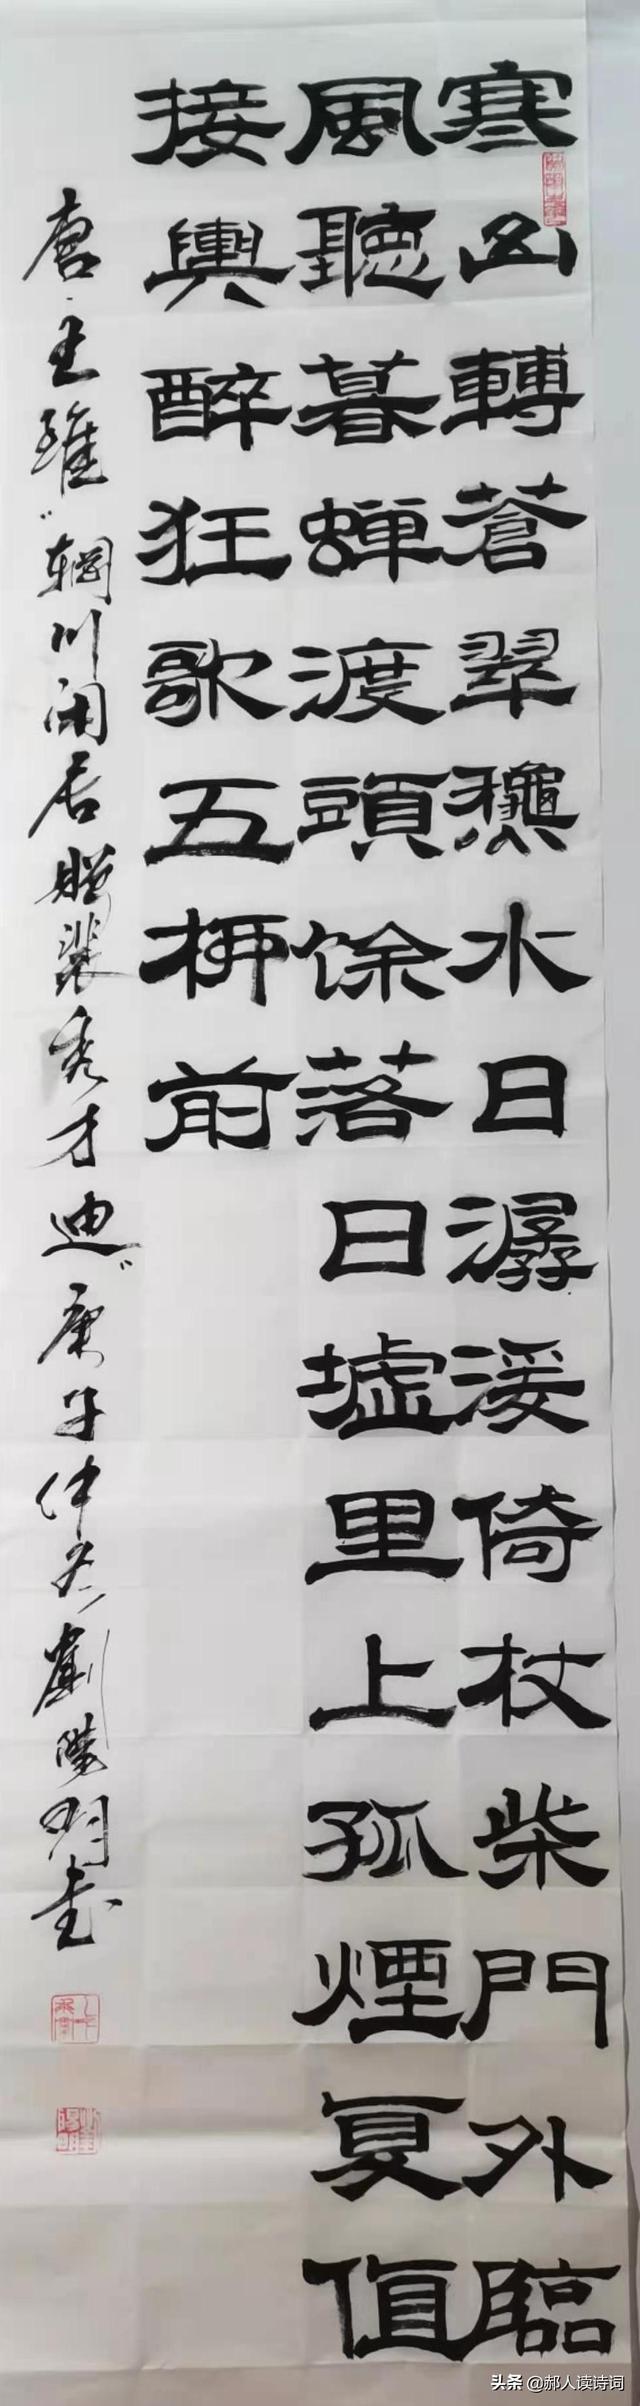 寒山轉蒼翠龝水日潺湲倚杖柴門外臨
風聽暮蝉渡頭馀落日墟里上孤煙夏值
接輿醉狂歌五柳前
唐·王維"輞川闲居贈裴秀才迪"庚子仲冬劉陽明書
头条 @郝人读诗词